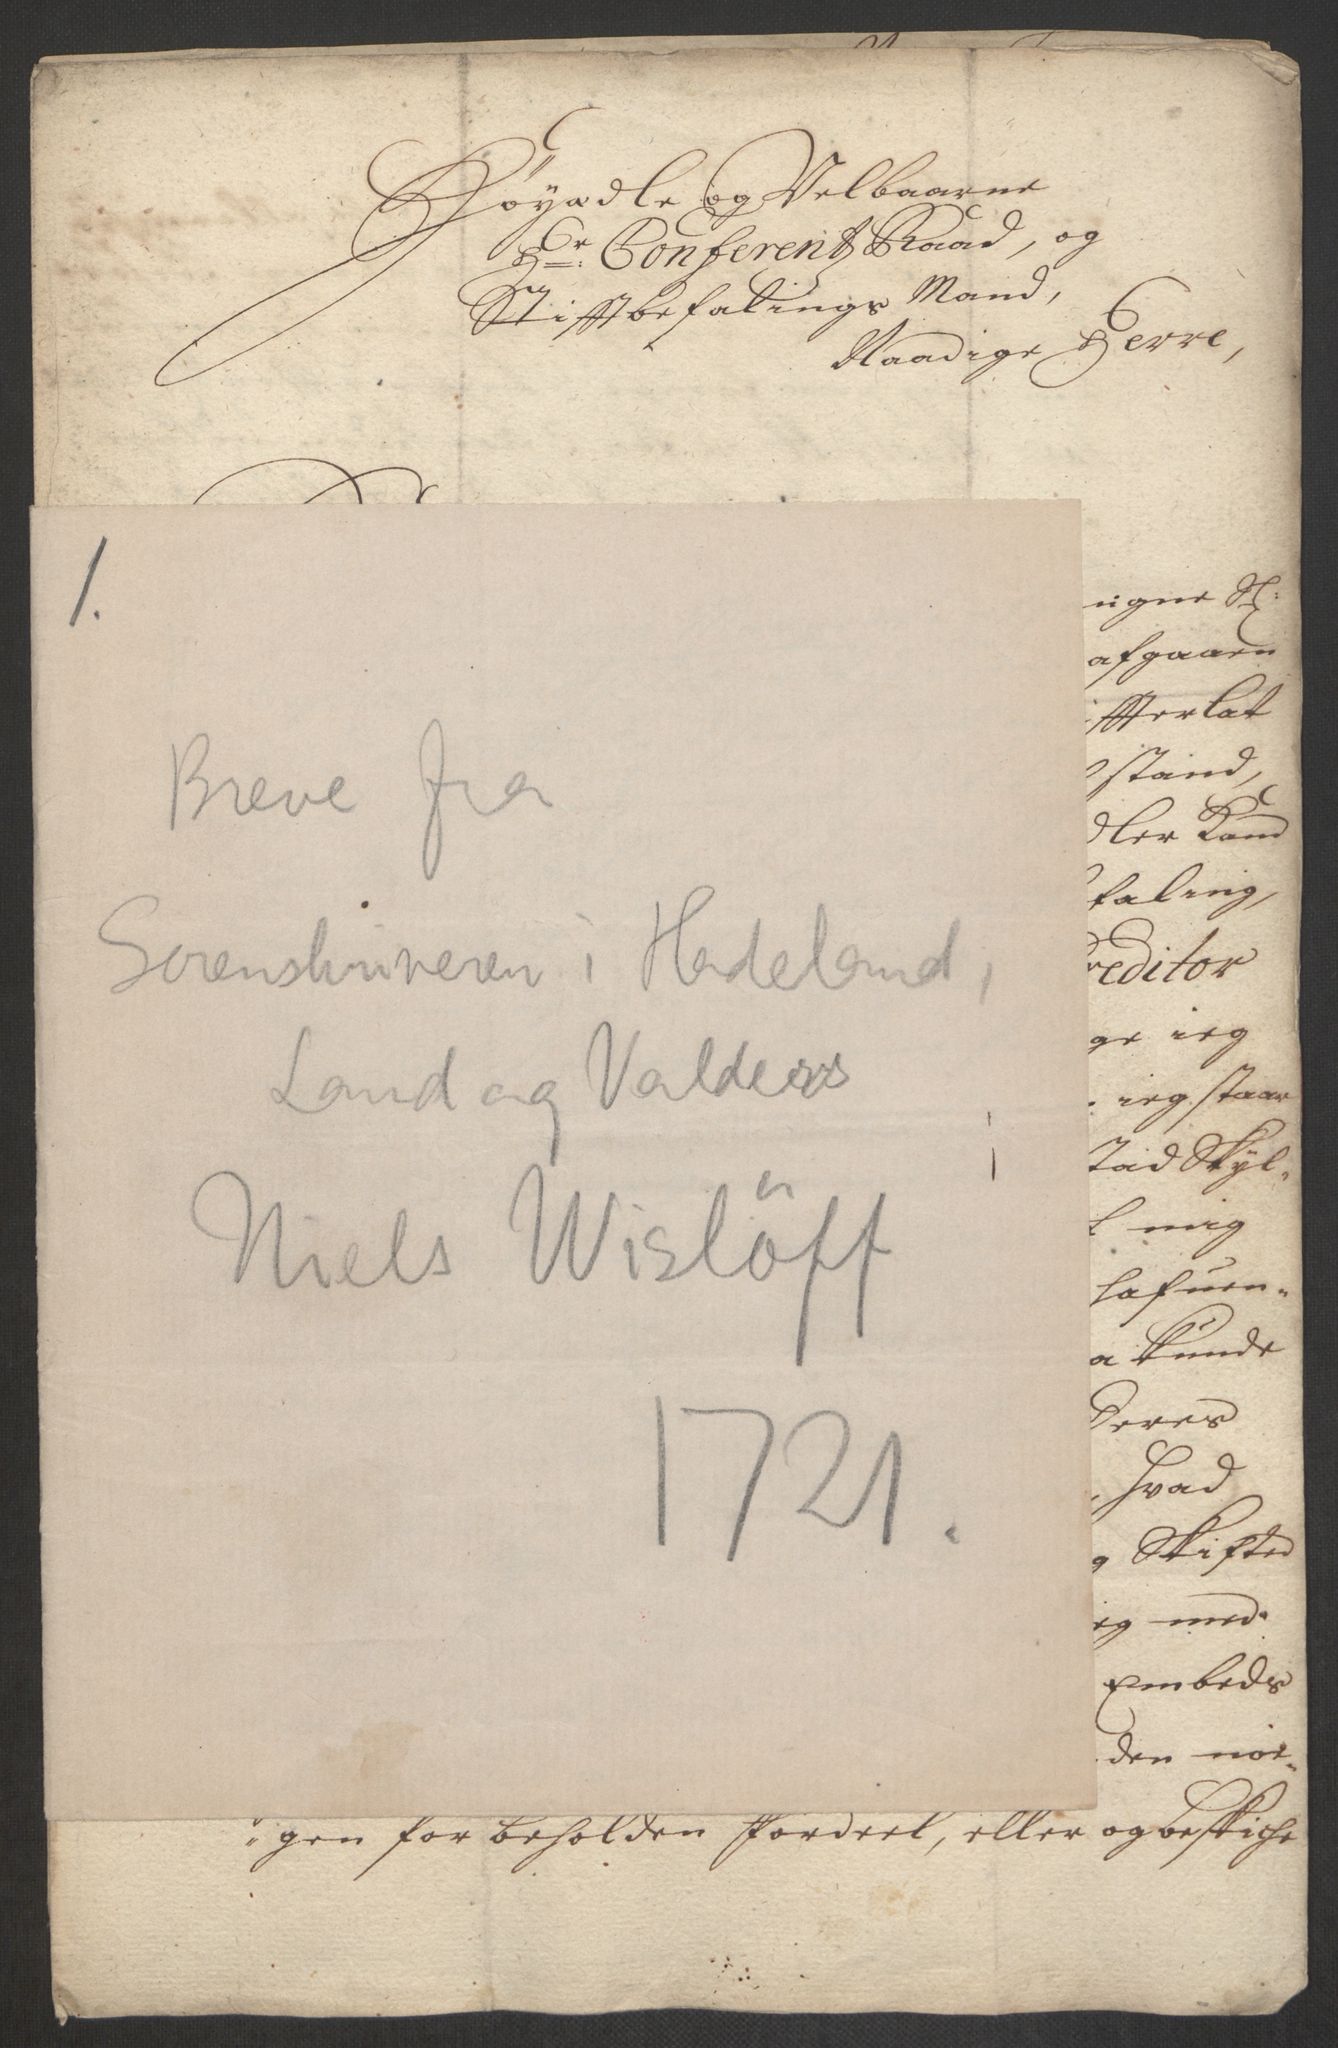 Höyædle og Velbaarne
Hr: Conferentz Raad, og
Stiftbefalings Mand,
Naadige Herre,
1.
Breve fra
Sorenskriveren i Hadeland,
Land og Valders
Niels Wislöff
1721.
afgaaen
efterlat
stand,
faling,
Creditor
ieg
ieg staar
Skyl-
mig
kunde
Deres
hvad
Skifted
med
Embeds
den nöe-
gen forbeholden Fordeel, eller og beskiche